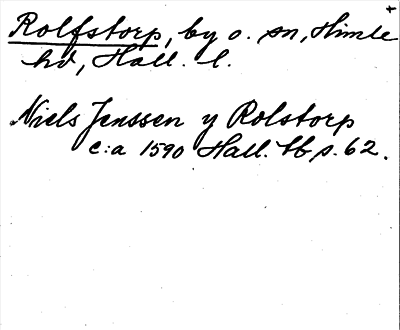 Rolfstorp, by o. sn, Himle
hd, Hall. l.
Niels Jenssen y Rolstorp
c:a 1590 Hall. tb s. 62.